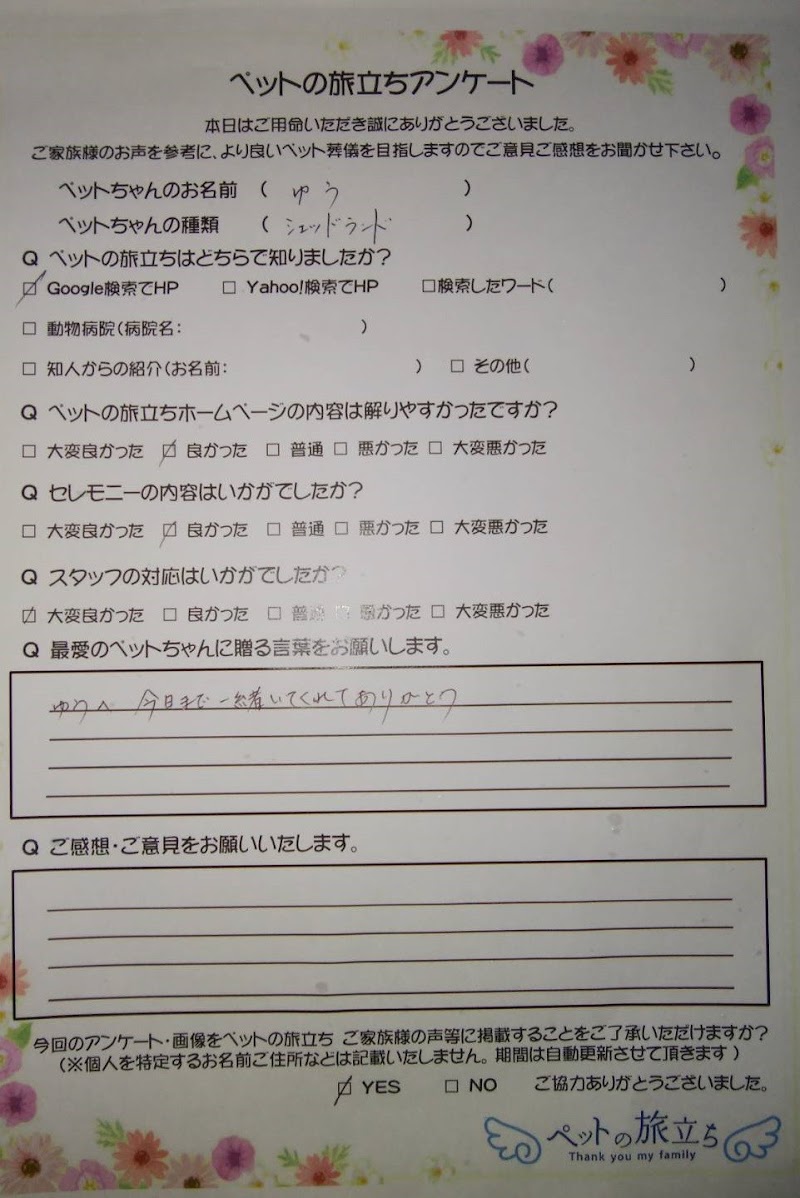 ペットの旅立ちアンケート
本日はご用命いただき誠にありがとうございました。
ご家族様のお声を参考に、より良いペット葬儀を目指しますのでご意見ご感想をお聞かせ下さい。
ペットちゃんのお名前 ( ゆう )
ペットちゃんの種類 ( シェットランド )
Q ペットの旅立ちはどちらで知りましたか?
☑ Google検索でHP □ Yahoo!検索でHP □検索したワード( )
□ 動物病院(病院名: )
□ 知人からの紹介(お名前: ) □ その他( )
Q ペットの旅立ちホームページの内容は解りやすかったですか?
□ 大変良かった ☑ 良かった □ 普通 □ 悪かった □ 大変悪かった
Q セレモニーの内容はいかがでしたか?
□ 大変良かった ☑ 良かった □ 普通 □ 悪かった □ 大変悪かった
Q スタッフの対応はいかがでしたか?
☑ 大変良かった □ 良かった □ 普通 □ 悪かった □ 大変悪かった
Q 最愛のペットちゃんに贈る言葉をお願いします。
ゆうへ 今日まで一緒いてくれてありがとう
Q ご感想・ご意見をお願いいたします。
今回のアンケート・画像をペットの旅立ち ご家族様の声等に掲載することをご了承いただけますか?
(※個人を特定するお名前ご住所などは記載いたしません。期間は自動更新させて頂きます)
☑ YES □ NO ご協力ありがとうございました。
ペットの旅立ち
Thank you my family